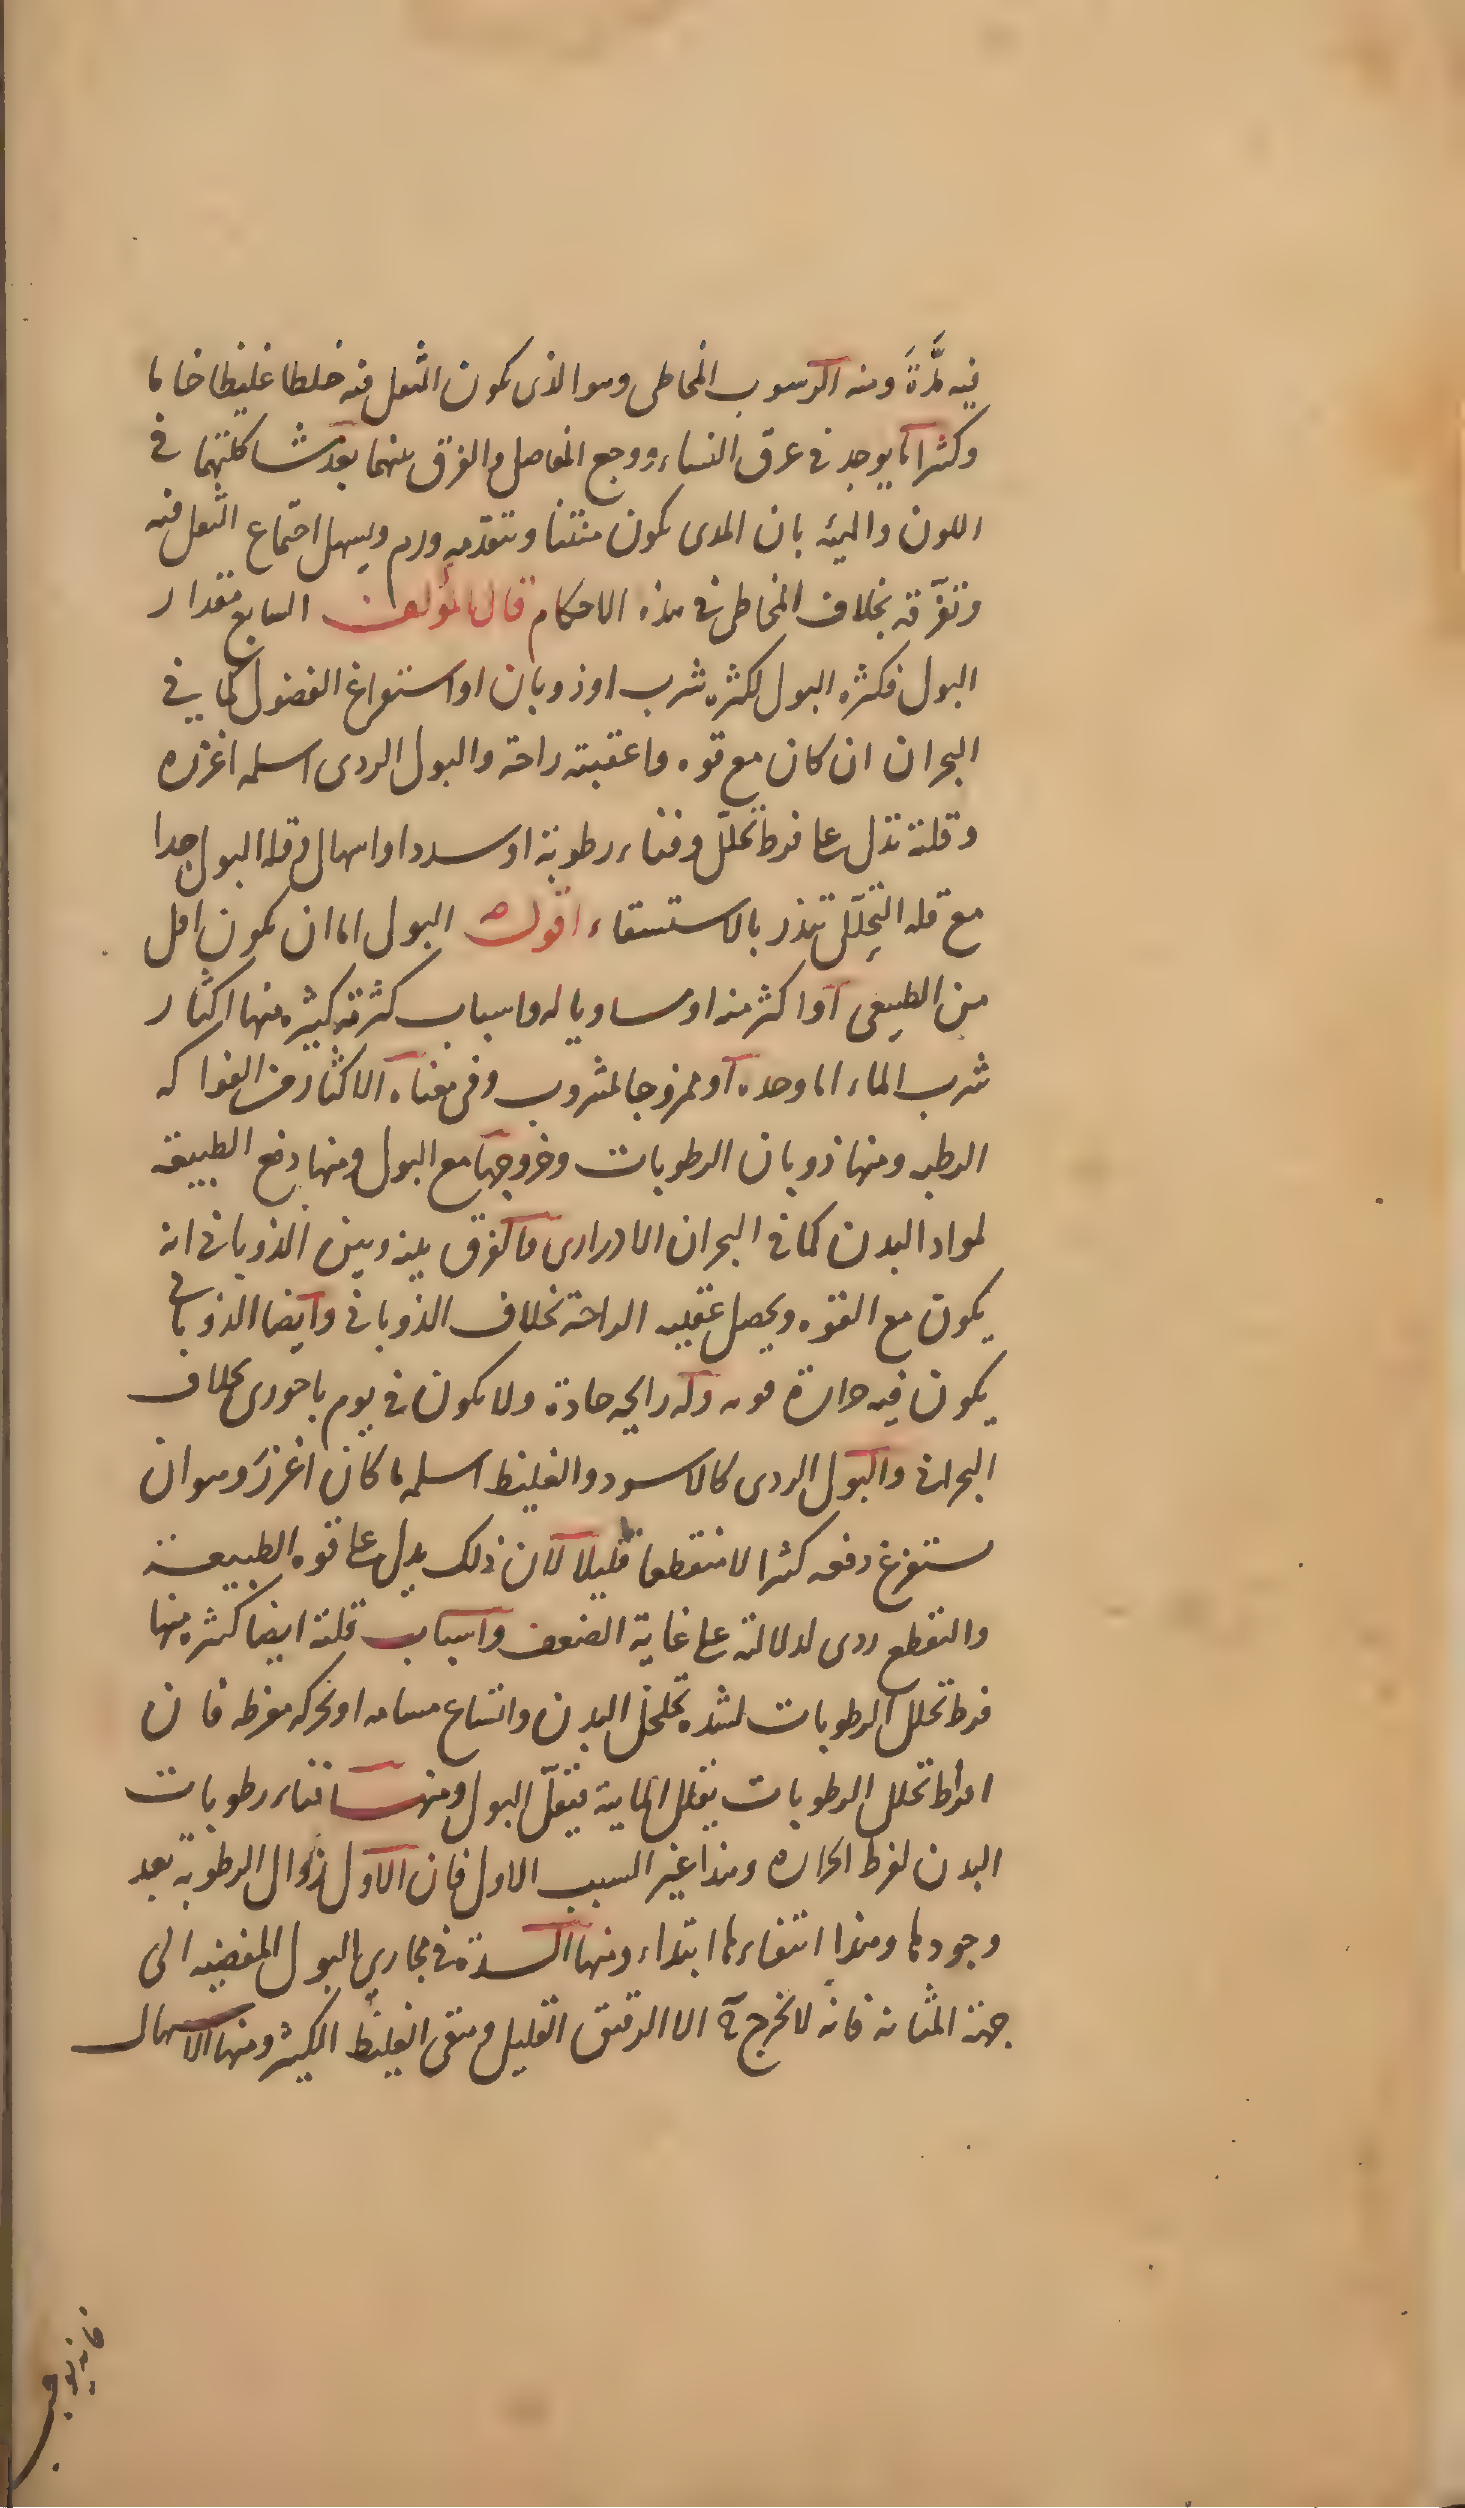 فيه مدّة ومنه الرسوب المخاطى وهو الذى يكون الثفل فيه خلطا غليظا خاما
وكثيرا ما يوجد فى عرق النساء ووجع المفاصل والفرق بينهما بعد مشاكلتهما فى
اللون والهيئة بان المدى يكون منتنا ويتقدمه ورم ويسهل اجتماع الثفل فيه
وتفرّقه بخلاف المخاطى فى هذه الاحكام قال المؤلف السابع مقدار
البول فكثرة البول لكثرة شرب او ذوبان او استفراغ الفضول كما فى
البحران ان كان مع قوه واعقبته راحة والبول الردى اسلمه اغزره
وقلته تدل على فرط تحلل وفناء رطوبة او سدد او اسهال وقلة البول جدا
مع قلة التحلّل تنذر بالاستسقاء اقول البول اما ان يكون اقل
من الطبيعى او اكثر منه او مساويا له واسباب كثرته كثيرة منها اكثار
شرب الماء اما وحده او ممزوجا لمشروب وفى معناه الاكثار من الفواكه
الرطبه ومنها ذوبان الرطوبات وخروجها مع البول ومنها دفع الطبيعة
لمواد البدن كما فى البحران الادرارى والفرق بينه وبين الذوبانى انه
يكون مع القوه ويحصل عقيبه الراحة بخلاف الذوبانى وايضا الذوبانى
يكون فيه حرارة قويه وله رايحه حادة ولا يكون فى يوم باحورى بخلاف
البحرانى والبول الردى كالاسود والغليظ اسلمه ما كان اغزر وهو ان
يستفرغ دفعه كثيرا لا متقطعا قليلا لان ذلك يدل على قوه الطبيعة
والتقطع ردى لدلالته على غاية الضعف واسباب قلته ايضا كثيره منها
فرط تحلل الرطوبات لشده تخلخل البدن واتساع مسامه او لحركه مفرطه فان
افراط تحلل الرطوبات يقلل المايية فيقلّ البول ومنها فناء رطوبات
البدن لفرط الحراره وهذا غير السبب الاول فان الاول زوال الرطوبة بعد
وجودها وهذا انتفاءها ابتداء ومنها السدة فى مجارى البول المفضيه الى
جهة المثانه فانه لا يخرج ح الا الرقيق القليل ويبقى الغليظ الكثير ومنها الاسهال
فانه يوجب